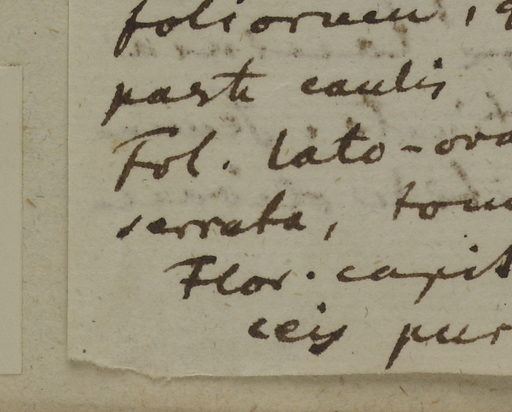 foliorum, 
parte caulis
Fol. lato-ova
serrata, tom
Flor. capit
ceis pur